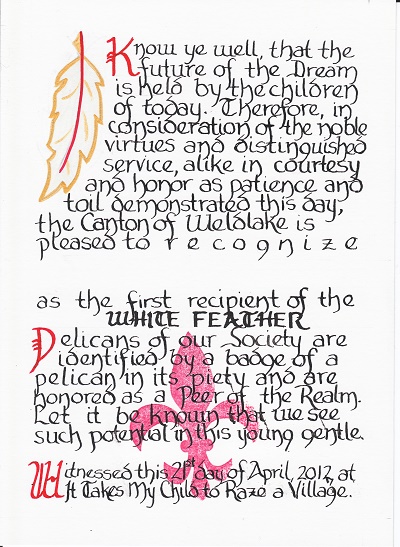 Know ye well, that the
future of the Dream
is held by the children
of today. Therefore, in
consideration of the noble
virtues and distinguished
service, alike in courtesy
and honor as patience and
toil demonstrated this day,
the Canton of Weldlake is
pleased to recognize
as the first recipient of the
WHITE FEATHER
Pelicans of our Society are
identified by a badge of a
pelican in its piety and are
honored as a Peer of the Realm.
Let it be known that we see
such potential in this young gentle.
Witnessed this 21st day of April 2012 at
It Takes My Child to Raze a Village.